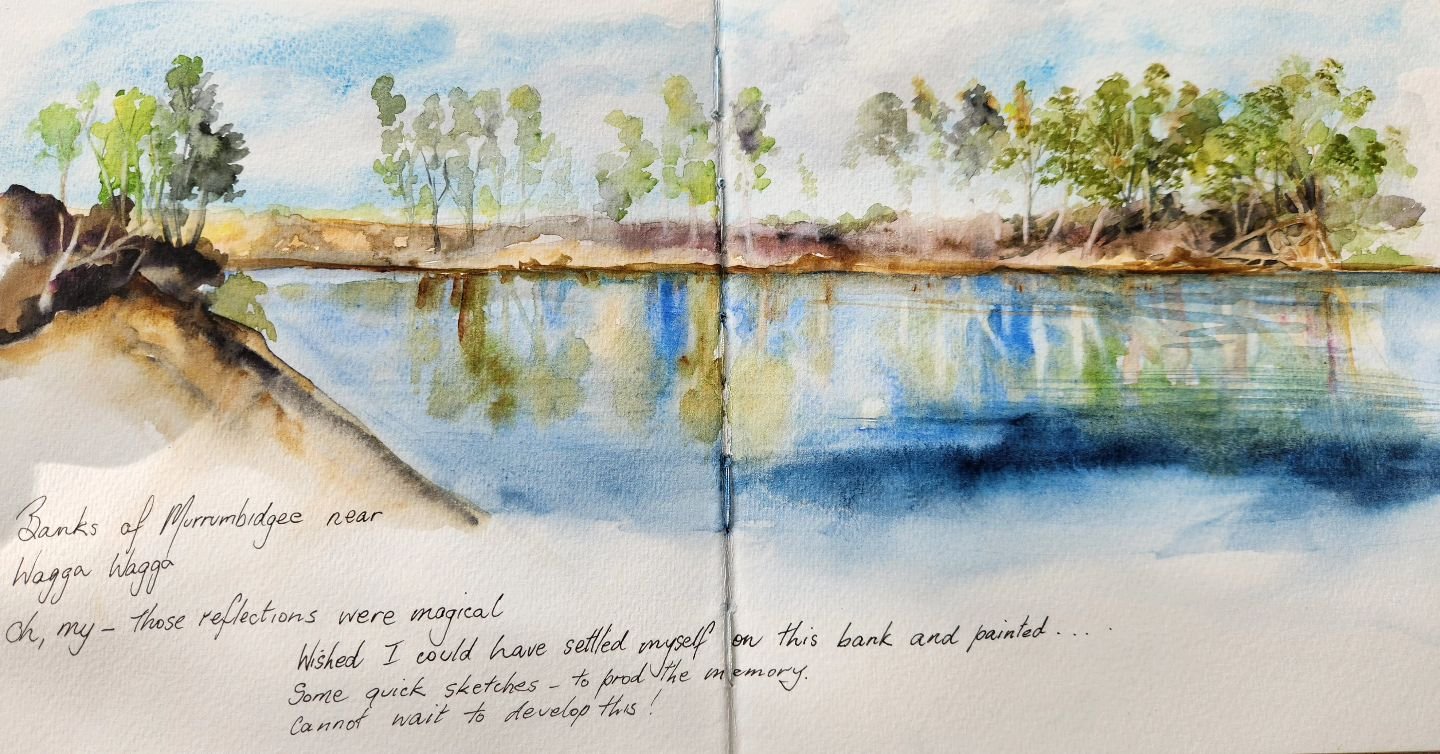 Banks of Murrumbidgee near
Wagga Wagga
Oh, my - those reflections were magical
Wished I could have settled myself on this bank and painted....
Some quick sketches - to prod the memory.
Cannot wait to develop this!